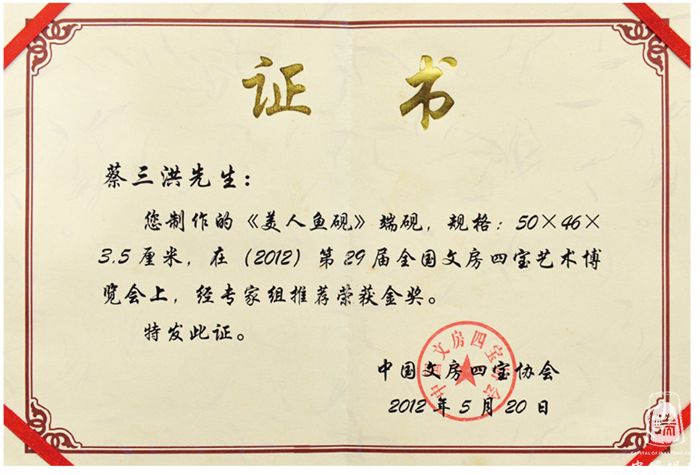 证书
蔡三洪先生：
您制作的《美人鱼砚》端砚，规格：50×46×
3.5厘米，在（2012）第29届全国文房四宝艺术博
览会上，经专家组推荐荣获金奖。
特发此证。
中国文房四宝协会
中国文房四宝协会
2012年5月20日
端